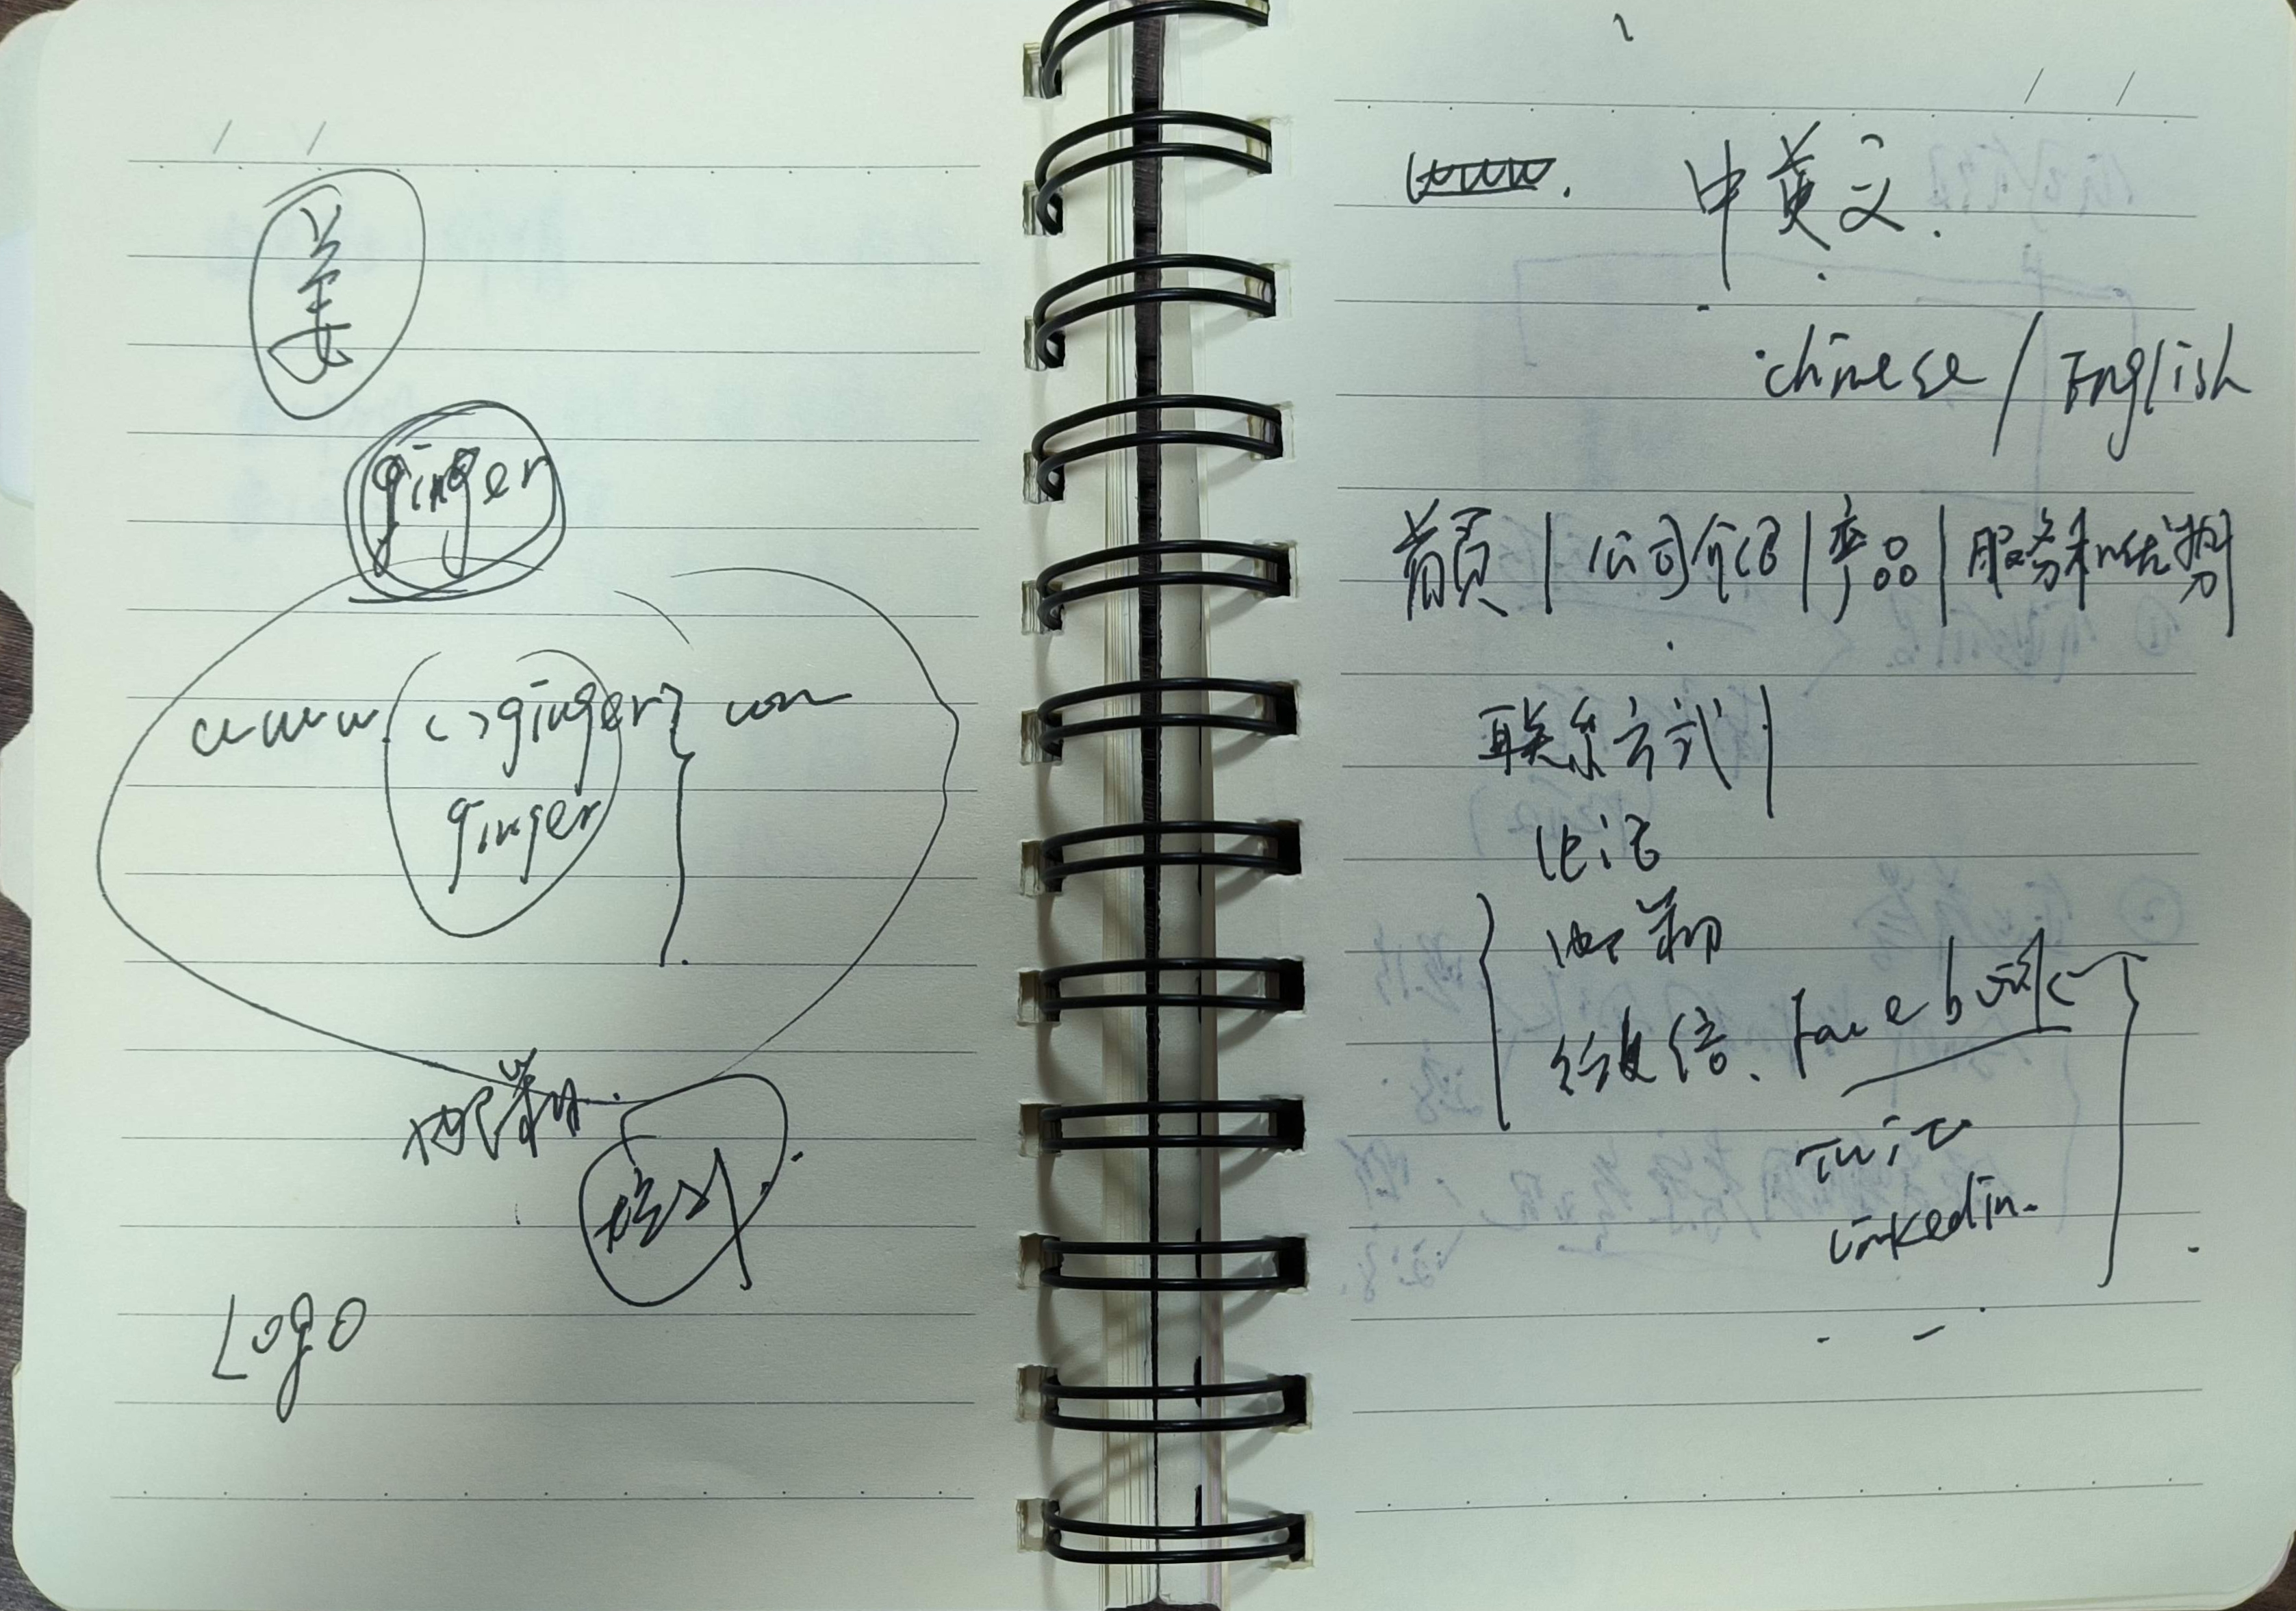 姜
ginger
www ( ) ginger } com
ginger
邮箱.
Logo
www. 中英文.
Chinese / English
首页 | 公司介绍 | 产品 | 服务和优势 |
联系方式 |
电话
邮箱
微信、facebook
Twit
Linkedin.